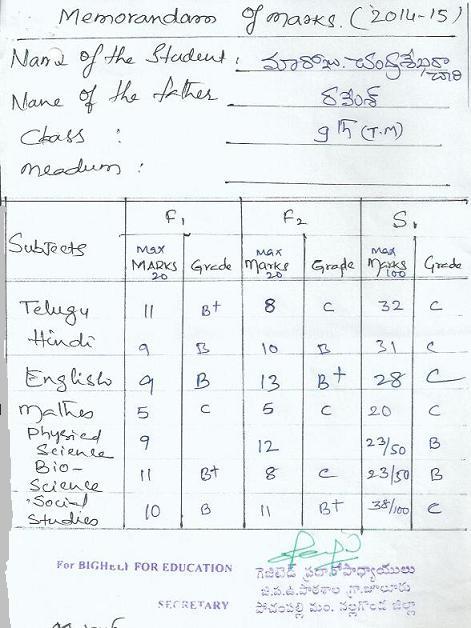 Memorandam of marks. (2014-15)
Name of the Student : మారోజు. చంద్రశేఖరా చారి
Name of the father రమేష్
Class : 9th (T.M)
meadum :
F1 F2 S1
Subjects Max MARKS 20 Grade Max Marks 20 Grade Max Marks 100 Grade
Telugu 11 B+ 8 C 32 C
Hindi 9 B 10 B 31 C
English 9 B 13 B+ 28 C
Mathes 5 C 5 C 20 C
Physical Science 9 12 23/50 B
Bio-Science 11 B+ 8 C 23/50 B
Social Studies 10 B 11 B+ 38/100 C
For BIGHELP FOR EDUCATION
SECRETARY
గెజిటెడ్ ప్రధానోపాధ్యాయులు
జి.ప.ఉ.పాఠశాల గ్రా.జూలూరు
పోచంపల్లి మం. నల్లగొండ జిల్లా